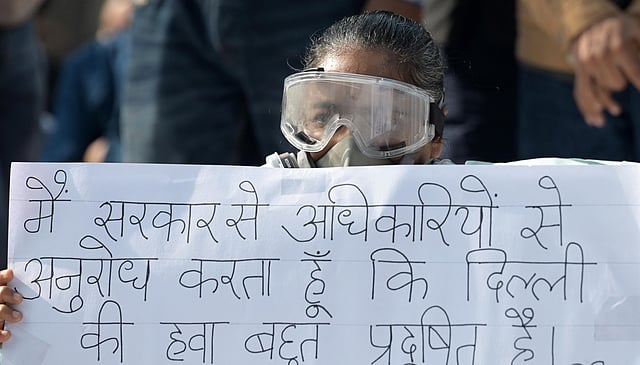 मैं सरकार से अधिकारियों से
अनुरोध करता हूँ कि दिल्ली
की हवा बहुत प्रदूषित है।